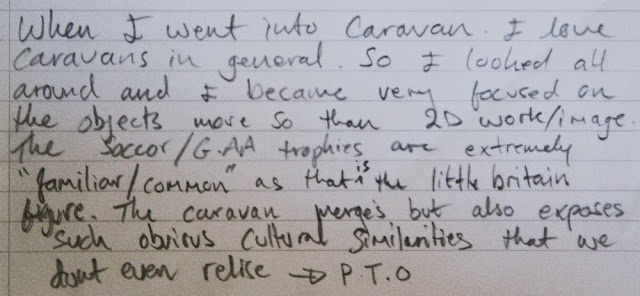 When I went into Caravan. I love
Caravans in general. So I looked all
around and I became very focused on
the objects more so than 2D work/image.
The Soccor/G.AA trophies are extremely
"familiar/common" as that is the little britain
figure. The caravan merge's but also exposes
such obvious Cultural Similarities that we
dunt even relise → P.T.O